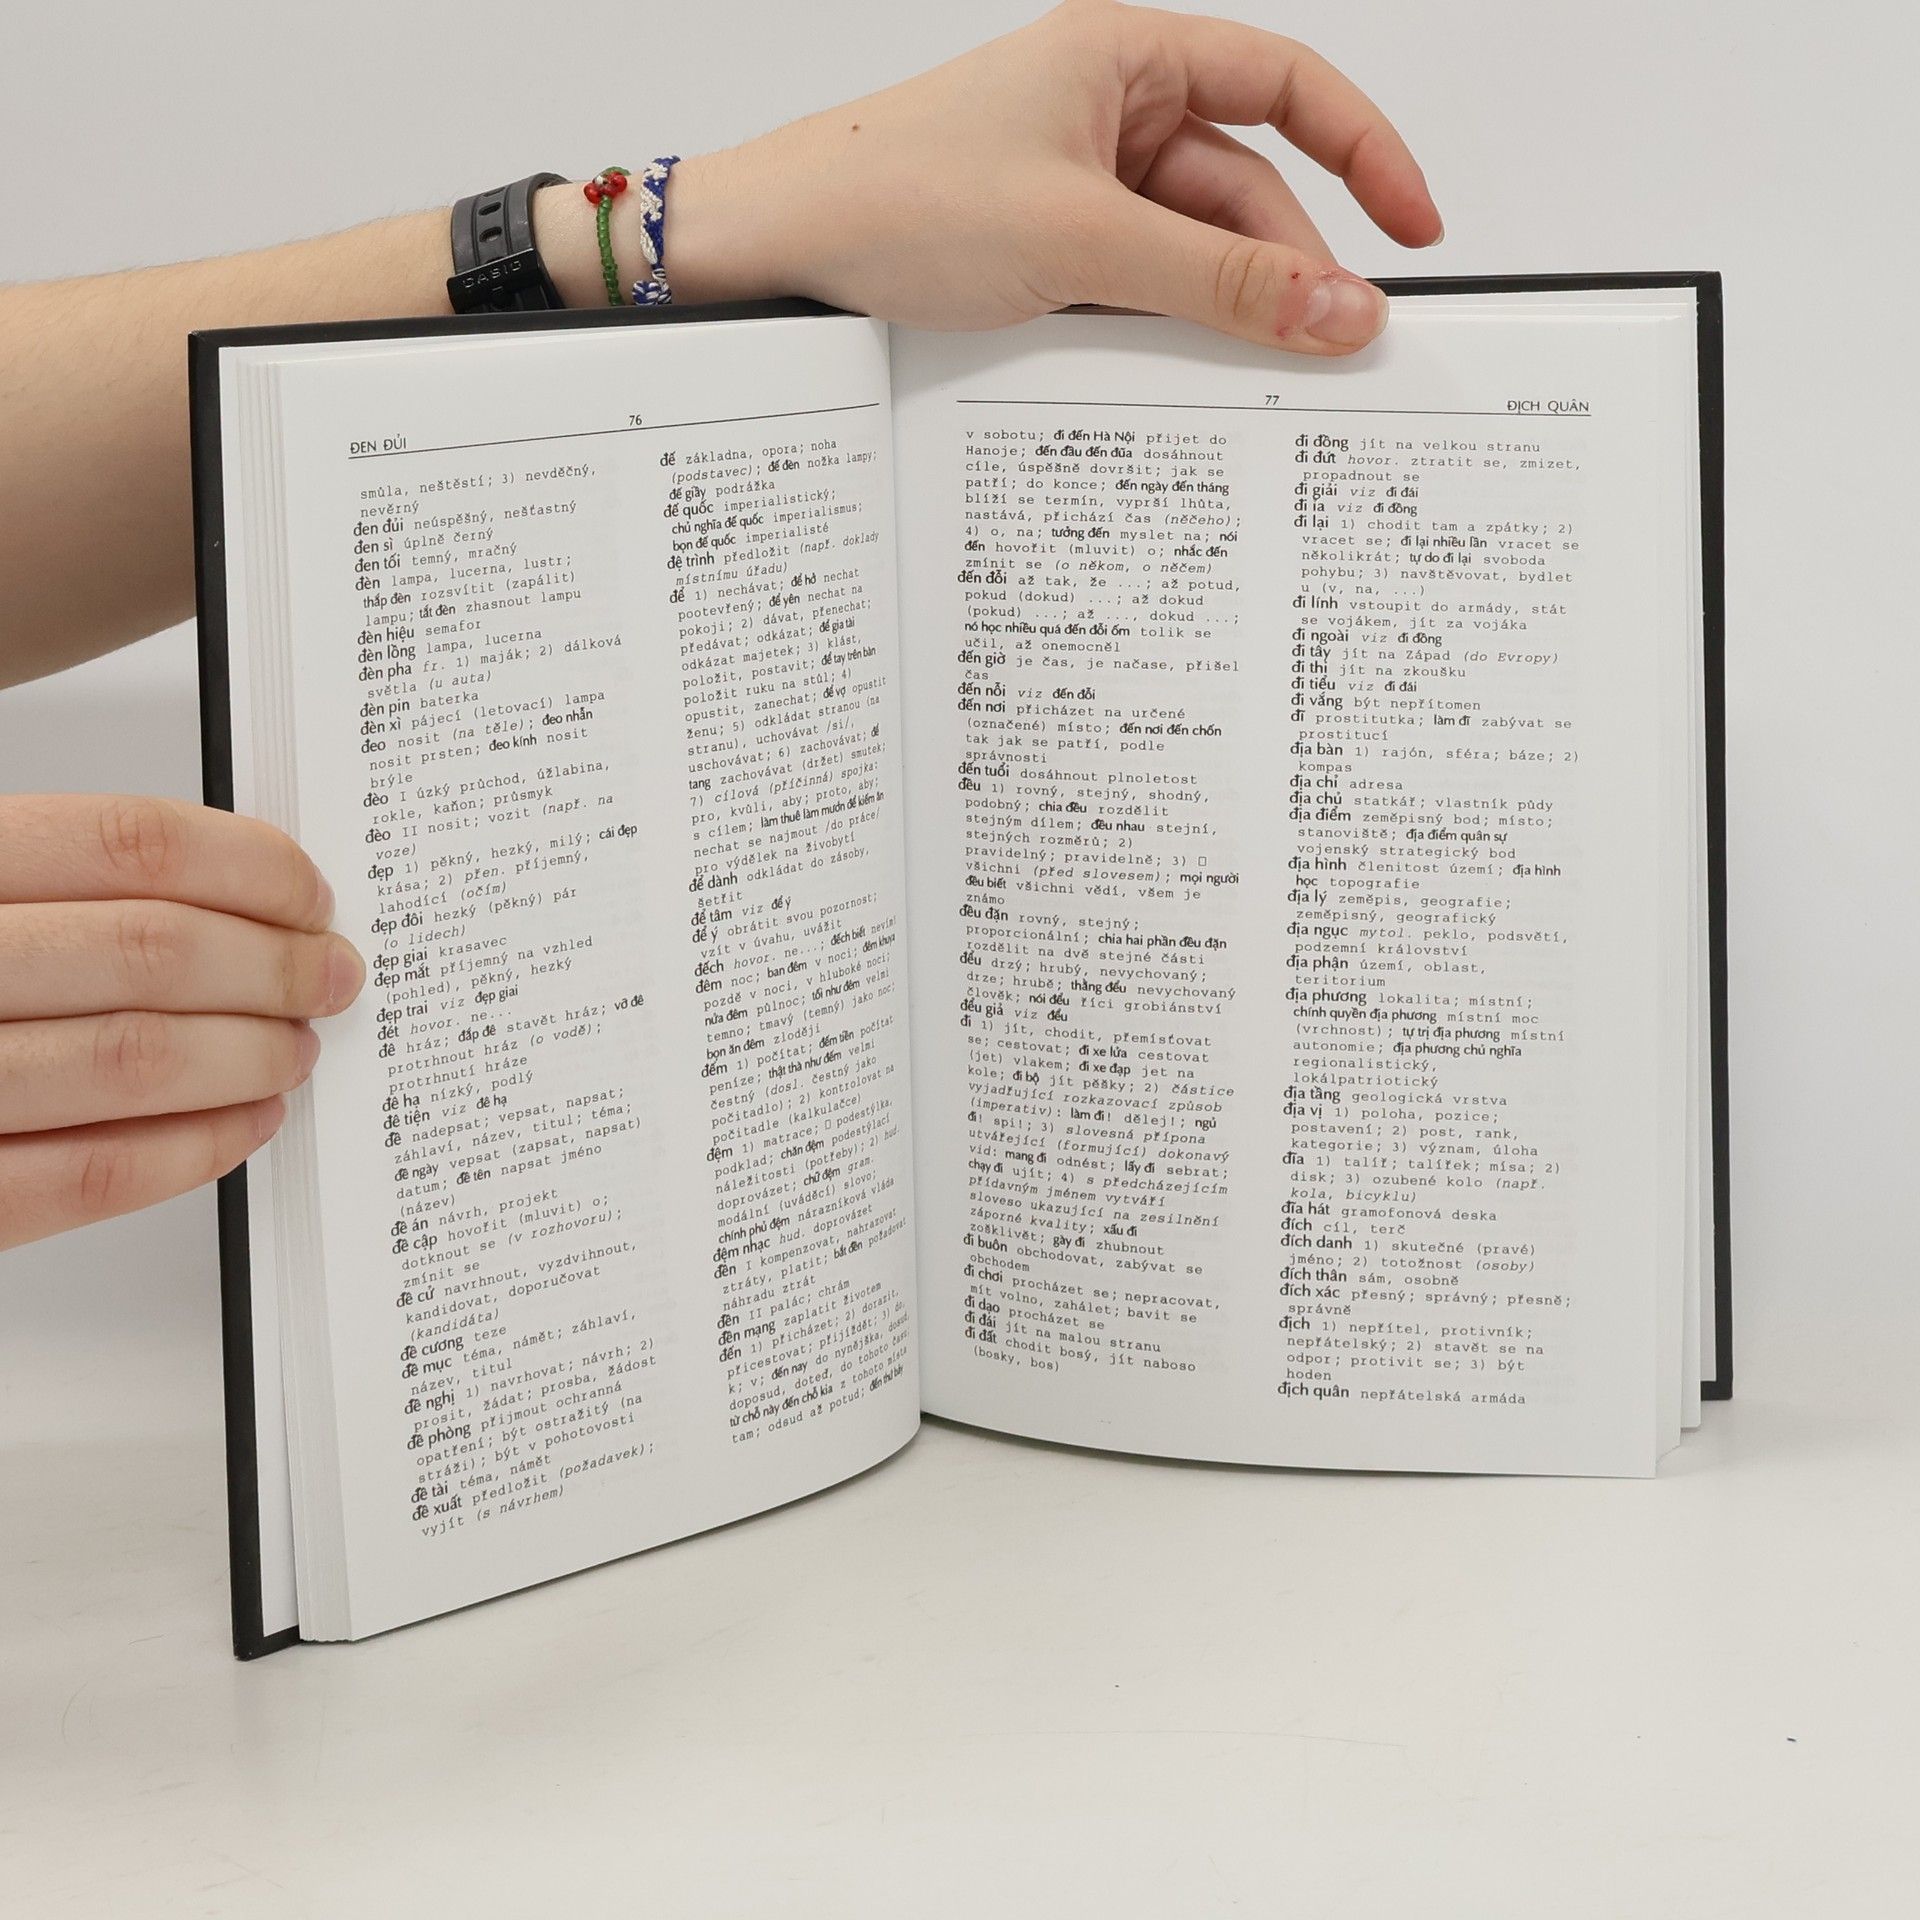 CASIO
76
ĐEN ĐỦI
smůla, neštěstí; 3) nevděčný,
nevěrný
đen đủi neúspěšný, nešťastný
đen sì úplně černý
đen tối temný, mračný
đèn lampa, lucerna, lustr;
thắp đèn rozsvítit (zapálit)
lampu; tắt đèn zhasnout lampu
đèn hiệu semafor
đèn lồng lampa, lucerna
đèn pha fr. 1) maják; 2) dálková
světla (u auta)
đèn pin baterka
đèn xì pájecí (letovací) lampa
đeo nosit (na těle); đeo nhẫn
nosit prsten; đeo kính nosit
brýle
đèo I úzký průchod, úžlabina,
rokle, kaňon; průsmyk
đèo II nosit; vozit (např. na
voze)
đẹp 1) pěkný, hezký, milý; cái đẹp
krása; 2) přen. příjemný,
lahodící (očím)
đẹp đôi hezký (pěkný) pár
(o lidech)
đẹp giai krasavec
đẹp mắt příjemný na vzhled
(pohled), pěkný, hezký
đẹp trai viz đẹp giai
đét hovor. ne...
đê hráz; đắp đê stavět hráz; vỡ đê
protrhnout hráz (o vodě);
protrhnutí hráze
đê hạ nízký, podlý
đê tiện viz đê hạ
đề nadepsat; vepsat, napsat;
záhlaví, název, titul; téma;
đề ngày vepsat (zapsat, napsat)
datum; đề tên napsat jméno
(název)
đề án návrh, projekt
đề cập hovořit (mluvit) o;
dotknout se (v rozhovoru);
zmínit se
đề cử navrhnout, vyzdvihnout,
kandidovat, doporučovat
(kandidáta)
đề cương teze
đề mục téma, námět; záhlaví,
název, titul
đề nghị 1) navrhovat; návrh; 2)
prosit, žádat; prosba, žádost
đề phòng přijmout ochranná
opatření; být ostražitý (na
stráži); být v pohotovosti
đề tài téma, námět
đề xuất předložit (požadavek);
vyjít (s návrhem)
đế základna, opora; noha
(podstavec); đế đèn nožka lampy;
đế giầy podrážka
đế quốc imperialistický;
chủ nghĩa đế quốc imperialismus;
bọn đế quốc imperialisté
đệ trình předložit (např. doklady
místnímu úřadu)
để 1) nechávat; để hở nechat
pootevřený; để yên nechat na
pokoji; 2) dávat, přenechat;
předávat; odkázat; để gia tài
odkázat majetek; 3) klást,
položit, postavit; để tay trên bàn
položit ruku na stůl; 4)
opustit, zanechat; để vợ opustit
ženu; 5) odkládat stranou (na
stranu), uchovávat /si/,
uschovávat; 6) zachovávat; để
tang zachovávat (držet) smutek;
7) cílová (příčinná) spojka:
pro, kvůli, aby; proto, aby;
s cílem; làm thuê làm mướn để kiếm ăn
nechat se najmout /do práce/
pro výdělek na živobytí
để dành odkládat do zásoby,
šetřit
để tâm viz để ý
để ý obrátit svou pozornost;
vzít v úvahu, uvážit
đếch hovor. ne...; đếch biết nevím!
đêm noc; ban đêm v noci; đêm khuya
pozdě v noci, v hluboké noci;
nửa đêm půlnoc; tối như đêm velmi
temno; tmavý (temný) jako noc;
bọn ăn đêm zloději
đếm 1) počítat; đếm tiền počítat
peníze; thật thà như đếm velmi
čestný (dosl. čestný jako
počítadlo); 2) kontrolovat na
počítadle (kalkulačce)
đệm 1) matrace; □ podestýlka,
podklad; chăn đệm podestýlací
náležitosti (potřeby); 2) hud.
doprovázet; chữ đệm gram.
modální (uváděcí) slovo;
chính phủ đệm nárazníková vláda
đệm nhạc hud. doprovázet
đền I kompenzovat, nahrazovat
ztráty, platit; bắt đền požadovat
náhradu ztrát
đền II palác; chrám
đền mạng zaplatit životem
đến 1) přicházet; 2) dorazit,
přicestovat; přijíždět; 3) do,
k; v; đến nay do nynějška, dosud,
doposud, doteď, do tohoto času;
từ chỗ này đến chỗ kia z tohoto místa
tam; odsud až potud; đến thứ bảy
77
ĐỊCH QUÂN
v sobotu; đi đến Hà Nội přijet do
Hanoje; đến đầu đến đũa dosáhnout
cíle, úspěšně dovršit; jak se
patří; do konce; đến ngày đến tháng
blíží se termín, vyprší lhůta,
nastává, přichází čas (něčeho);
4) o, na; tưởng đến myslet na; nói
đến hovořit (mluvit) o; nhắc đến
zmínit se (o někom, o něčem)
đến đỗi až tak, že ...; až potud,
pokud (dokud) ...; až dokud
(pokud) ...; až ..., dokud ...;
nó học nhiều quá đến đỗi ốm tolik se
učil, až onemocněl
đến giờ je čas, je načase, přišel
čas
đến nỗi viz đến đỗi
đến nơi přicházet na určené
(označené) místo; đến nơi đến chốn
tak jak se patří, podle
správnosti
đến tuổi dosáhnout plnoletost
đều 1) rovný, stejný, shodný,
podobný; chia đều rozdělit
stejným dílem; đều nhau stejní,
stejných rozměrů; 2)
pravidelný; pravidelně; 3) □
všichni (před slovesem); mọi người
đều biết všichni vědí, všem je
známo
đều đặn rovný, stejný;
proporcionální; chia hai phần đều đặn
rozdělit na dvě stejné části
đểu drzý; hrubý, nevychovaný;
drze; hrubě; thằng đểu nevychovaný
člověk; nói đểu říci grobiánství
đểu giả viz đểu
đi 1) jít, chodit, přemísťovat
se; cestovat; đi xe lửa cestovat
(jet) vlakem; đi xe đạp jet na
kole; đi bộ jít pěšky; 2) částice
vyjadřující rozkazovací způsob
(imperativ): làm đi! dělej!; ngủ
đi! spi!; 3) slovesná přípona
utvářející (formující) dokonavý
vid: mang đi odnést; lấy đi sebrat;
chạy đi ujít; 4) s předcházejícím
přídavným jménem vytváří
sloveso ukazující na zesilnění
záporné kvality; xấu đi
zošklivět; gày đi zhubnout
đi buôn obchodovat, zabývat se
obchodem
đi chơi procházet se; nepracovat,
mít volno, zahálet; bavit se
đi dạo procházet se
đi đái jít na malou stranu
đi đất chodit bosý, jít naboso
(bosky, bos)
đi đồng jít na velkou stranu
đi đứt hovor. ztratit se, zmizet,
propadnout se
đi giải viz đi đái
đi ỉa viz đi đồng
đi lại 1) chodit tam a zpátky; 2)
vracet se; đi lại nhiều lần vracet se
několikrát; tự do đi lại svoboda
pohybu; 3) navštěvovat, bydlet
u (v, na, ...)
đi lính vstoupit do armády, stát
se vojákem, jít za vojáka
đi ngoài viz đi đồng
đi tây jít na Západ (do Evropy)
đi thi jít na zkoušku
đi tiểu viz đi đái
đi vắng být nepřítomen
đĩ prostitutka; làm đĩ zabývat se
prostitucí
địa bàn 1) rajón, sféra; báze; 2)
kompas
địa chỉ adresa
địa chủ statkář; vlastník půdy
địa điểm zeměpisný bod; místo;
stanoviště; địa điểm quân sự
vojenský strategický bod
địa hình členitost území; địa hình
học topografie
địa lý zeměpis, geografie;
zeměpisný, geografický
địa ngục mytol. peklo, podsvětí,
podzemní království
địa phận území, oblast,
teritorium
địa phương lokalita; místní;
chính quyền địa phương místní moc
(vrchnost); tự trị địa phương místní
autonomie; địa phương chủ nghĩa
regionalistický,
lokálpatriotický
địa tầng geologická vrstva
địa vị 1) poloha, pozice;
postavení; 2) post, rank,
kategorie; 3) význam, úloha
đĩa 1) talíř; talířek; mísa; 2)
disk; 3) ozubené kolo (např.
kola, bicyklu)
đĩa hát gramofonová deska
đích cíl, terč
đích danh 1) skutečné (pravé)
jméno; 2) totožnost (osoby)
đích thân sám, osobně
đích xác přesný; správný; přesně;
správně
địch 1) nepřítel, protivník;
nepřátelský; 2) stavět se na
odpor; protivit se; 3) být
hoden
địch quân nepřátelská armáda